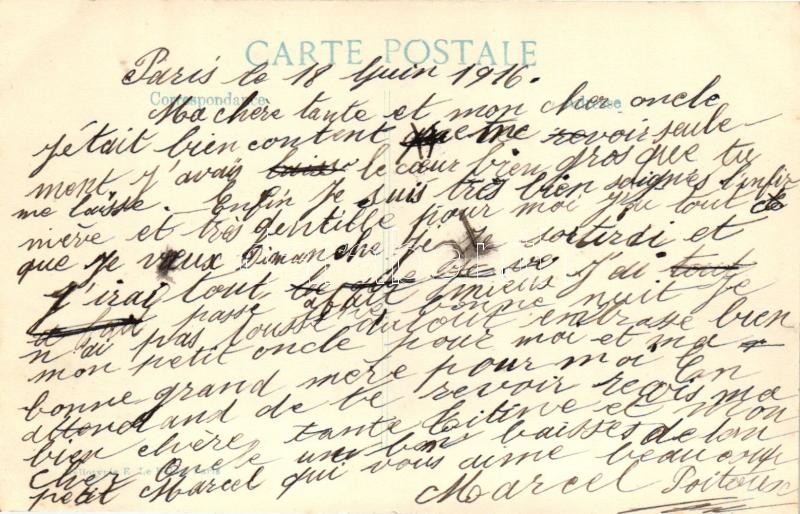 CARTE POSTALE
Paris le 18 Juin 1916.
Correspondance
Adresse
Ma chere tante et mon cher oncle
j'était bien content que me revoir seule-
ment J'avais le cœur bien gros que tu
me laisse. Enfin Je suis très bien soignes l'infir
mière et très gentille pour moi J'ai tout ce
que Je veux Dimanche Je sortirai et
J'irai tout J'ai tout
passé bonne nuit Je
n'ai pas tousse du tout embrase bien
mon petit oncle pour moi et ma
bonne grand mère pour moi En
attendand de te revoir reçois ma
bien chère tante Titine et mon
cher oncle un bon baisses de ton
petit Marcel qui vous aime beaucoup
Marcel Poitoux